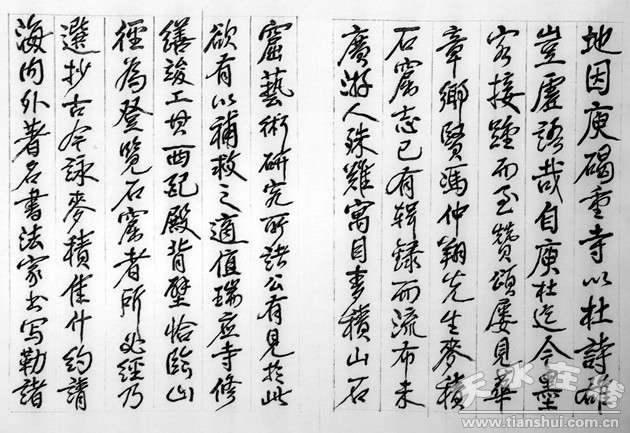 地因庾碣重寺以杜詩雄
豈虛語哉自庾杜迄今墨
客接踵而至贊頌屢見華
章鄉賢馮仲翔先生麥積
石窟志已有辑錄而流布未
廣游人殊難寓目麥積山石
窟藝術研究所諸公有見於此
欲有以補救之適值瑞应寺修
繕竣工其西配殿背壁恰臨山
徑為登覽石窟者所必經乃
選抄古今詠麥積佳什約請
海内外著名書法家书写勒諸
天水在线
www.tianshui.com.cn